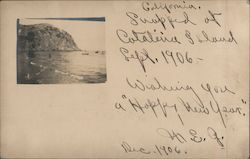 California.
Snapped at
Catalina Island
Sept. 1906-
Wishing you
a "Happy New Year.
Dec. 1906.